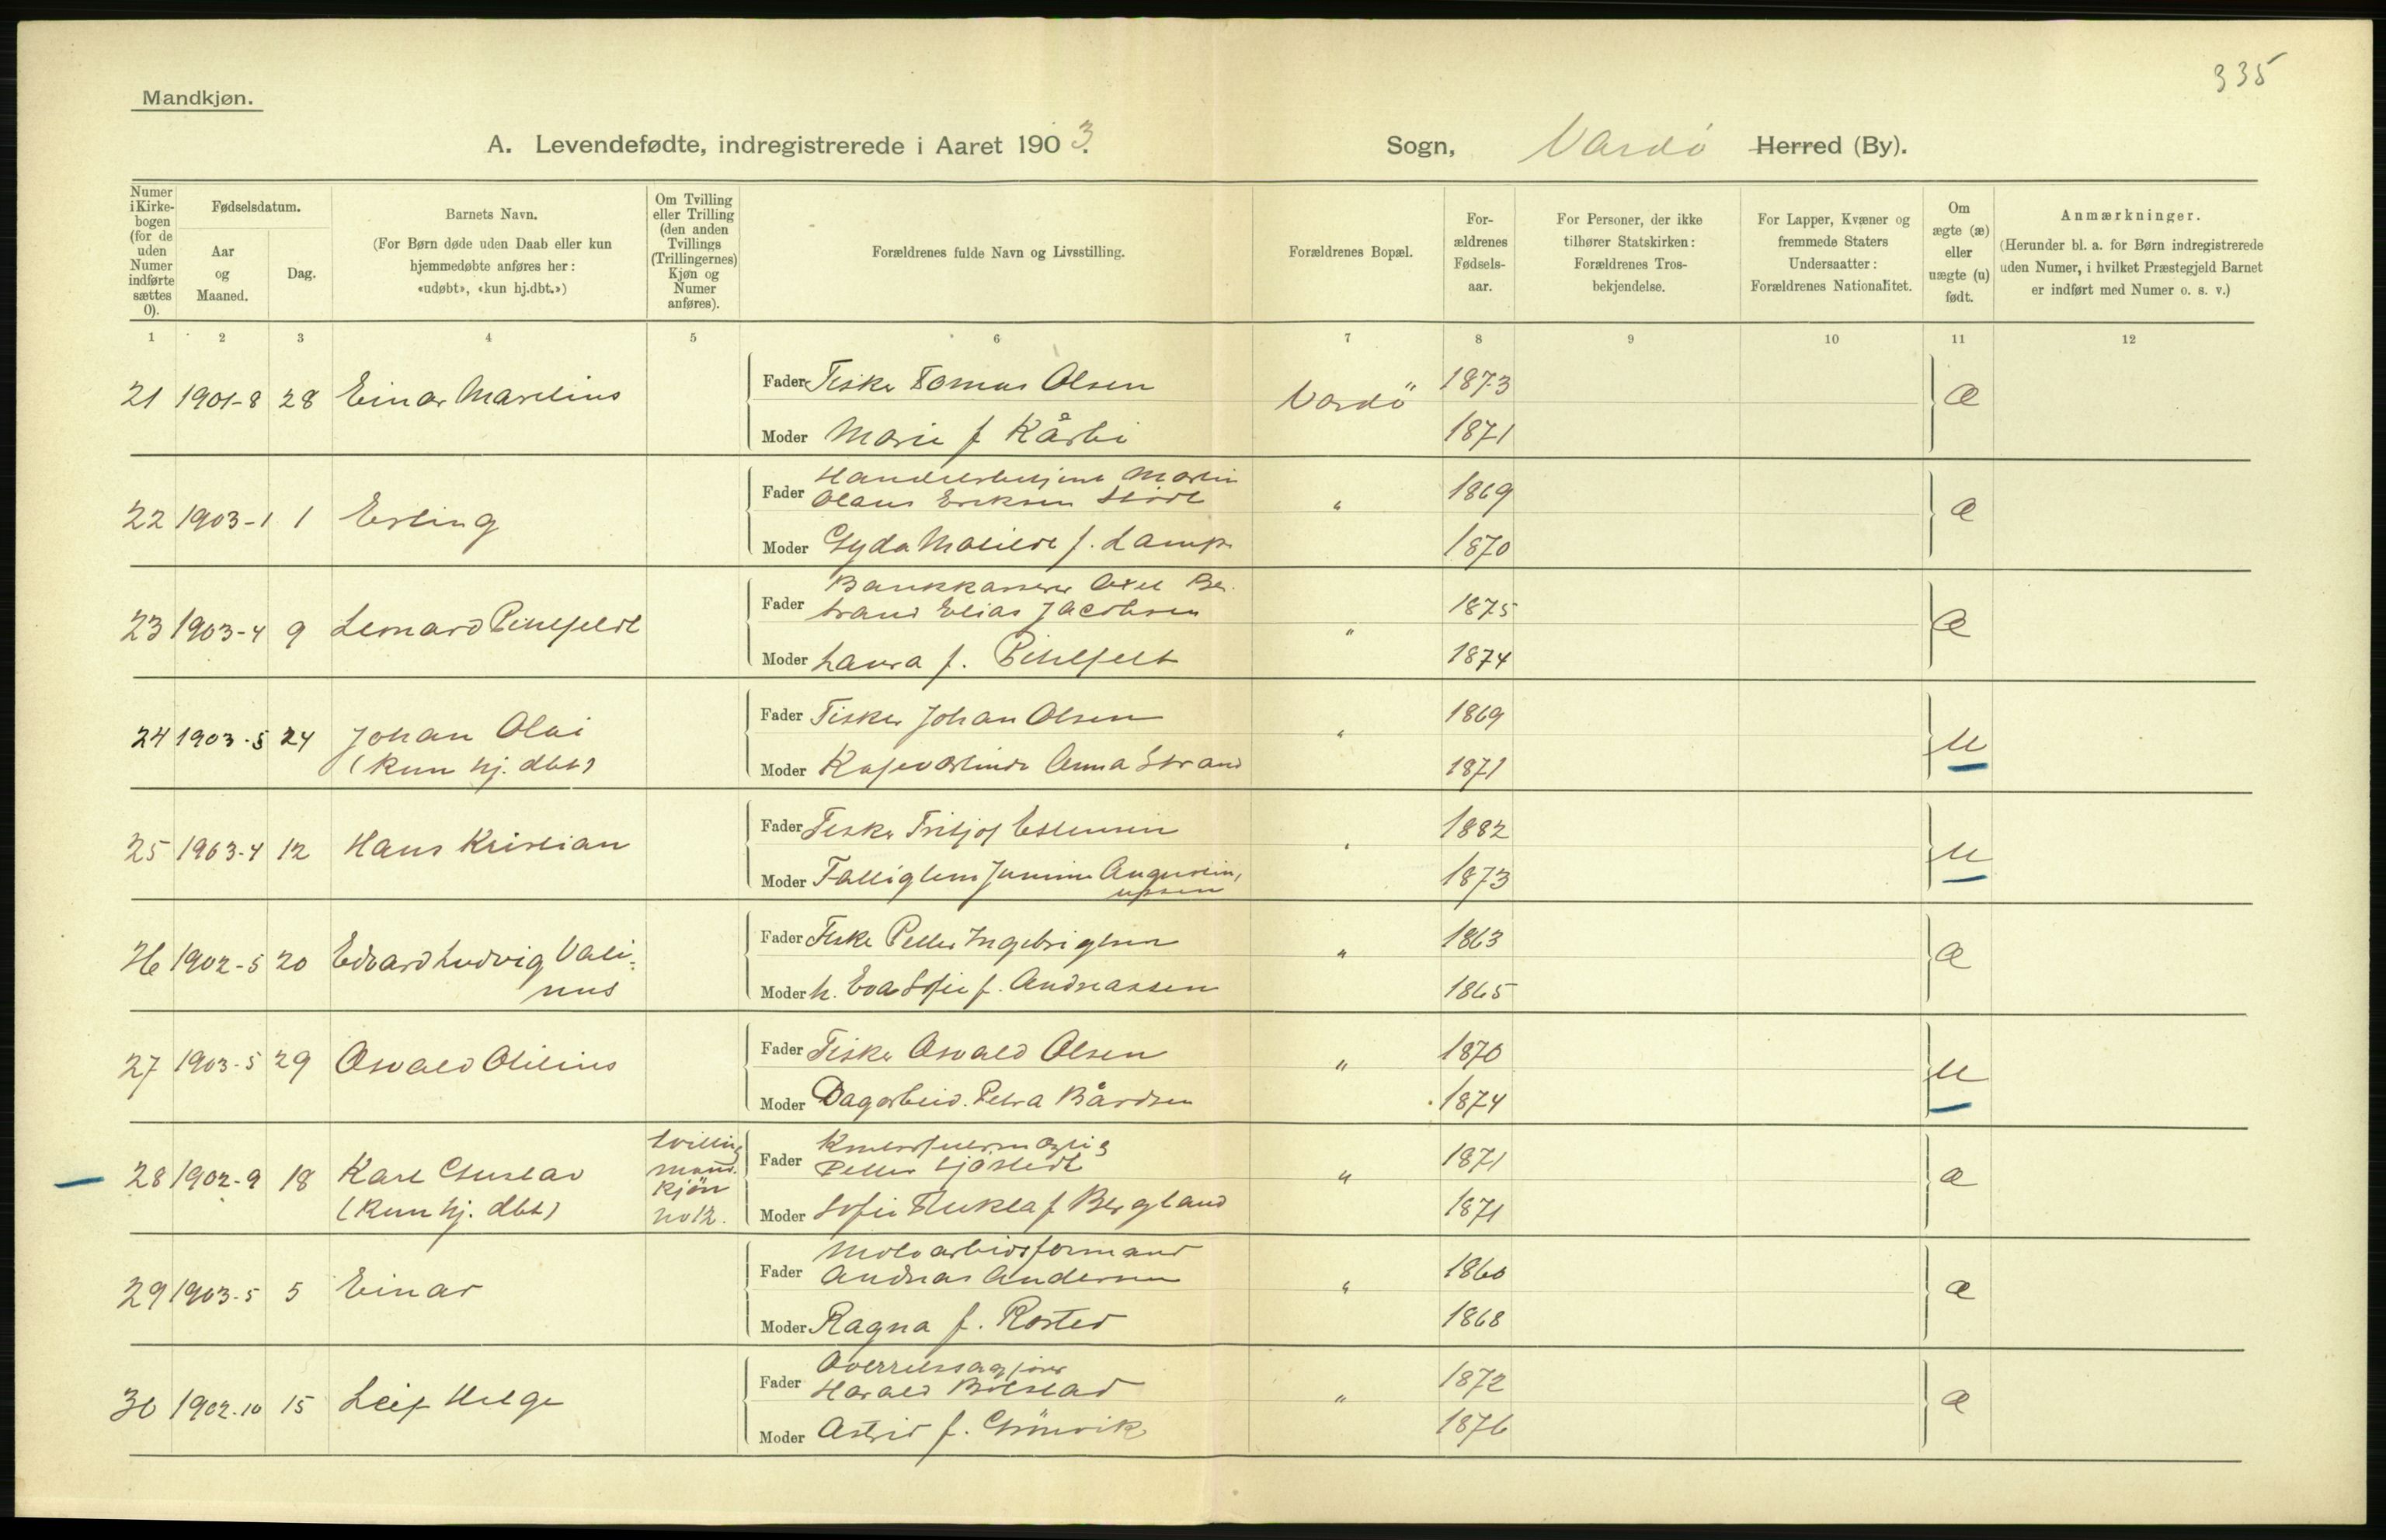 335
Mandkjøn.
A. Levendefødte, indregistrerede i Aaret 1903. Sogn, Vardø Herred (By).
Numer i Kirke-bogen (for de uden Numer indførte sættes 0).
Fødselsdatum.
Aar og Maaned.
Dag.
Barnets Navn.
(For Børn døde uden Daab eller kun hjemmedøbte anføres her: «udøbt», «kun hj.dbt.»)
Om Tvilling eller Trilling (den anden Tvillings (Trillingernes) Kjøn og Numer anføres).
Forældrenes fulde Navn og Livsstilling.
Forældrenes Bopæl.
For-ældrenes Fødsels-aar.
For Personer, der ikke tilhører Statskirken: Forældrenes Tros-bekjendelse.
For Lapper, Kvæner og fremmede Staters Undersaatter: Forældrenes Nationalitet.
Om ægte (æ) eller uægte (u) født.
Anmærkninger.
(Herunder bl. a. for Børn indregistrerede uden Numer, i hvilket Præstegjeld Barnet er indført med Numer o. s. v.)
1 2 3 4 5 6 7 8 9 10 11 12
21 1901-8 28 Einar Marelius Fader Fisker Tomas Olsen Vardö 1873 æ
Moder Marie f Kårbi 1871
22 1903-1 1 Erling Fader Handelsbetjent Martin
Olaus Eriksen " 1869 æ
Moder Gyda f. Lamp 1870
23 1903-4 9 Fader Bankkasserer Axel Ber-
trand Elias Jacobsen " 1875 æ
Moder Laura f. Pihlfelt 1874
24 1903-5 24 Johan Olai Fader Fisker Johan Olsen " 1869 u
(kun hj. dbt) Moder Anna Strand 1871
25 1903-4 12 Hans Kristian Fader Fisker Fritjof " 1882 u
Moder Fattiglem 1873
26 1902-5 20 Edvard Ludvig Vali-
nus Fader Fisker Petter Ingebrigtsen " 1863 æ
Moder h. Eva Sofie f. Andreassen 1865
27 1903-5 29 Osvald Otilius Fader Fisker Osvald Olsen " 1870 u
Moder Dagarbeid. Petra Bårdsen 1874
28 1902-9 18 Karl Gustav tvilling
mand-
kjön
no 12. Fader
Petter Sjöstedt " 1871 æ
(kun hj. dbt) Moder Sofie Tekla f Bergland 1871
29 1903-5 5 Einar Fader Moloarbeidsformand
Andreas Andersen " 1860 æ
Moder Ragna f. Rosted 1868
30 1902-10 15 Leif Helge Fader Overretssagfører
Harald Bolstad " 1872 æ
Moder Astrid f. Grönvik 1876